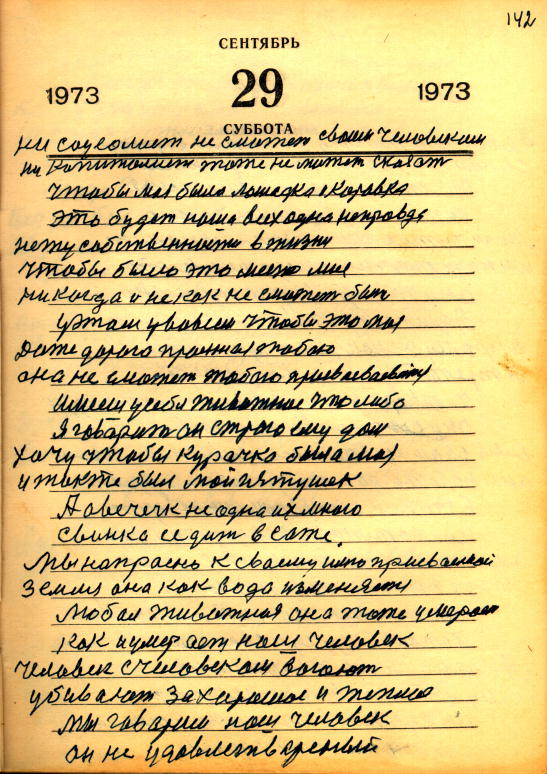 142
СЕНТЯБРЬ
1973 29 1973
СУББОТА
ни социолист не сможет своим человеком
ни Капитолист тоже не может сказат
чтобы моя была лошадка и Коравка
Это будет наша всех одна неправда
нету собственности в жизни
чтобы было это место мне
никогда и не как не сможет быть
чтобы это моя
Даже дорога
она не сможет тобою присваеваться
имеем у себя животное что либо
Я говарю он строго ему дом
хочу чтобы Курачка была моя
и также был мой пятушок
Аовечек не одна их много
свинка седит в саже.
Мы напрасно к своему имю присваеной
Земля она как вода изменяется
Любая животная она тоже умерает
как и умерает наш человек
Человек с человеком воюют
убивают За харошое и теплое
Мы говарим наш человек
он не удовлетвореный